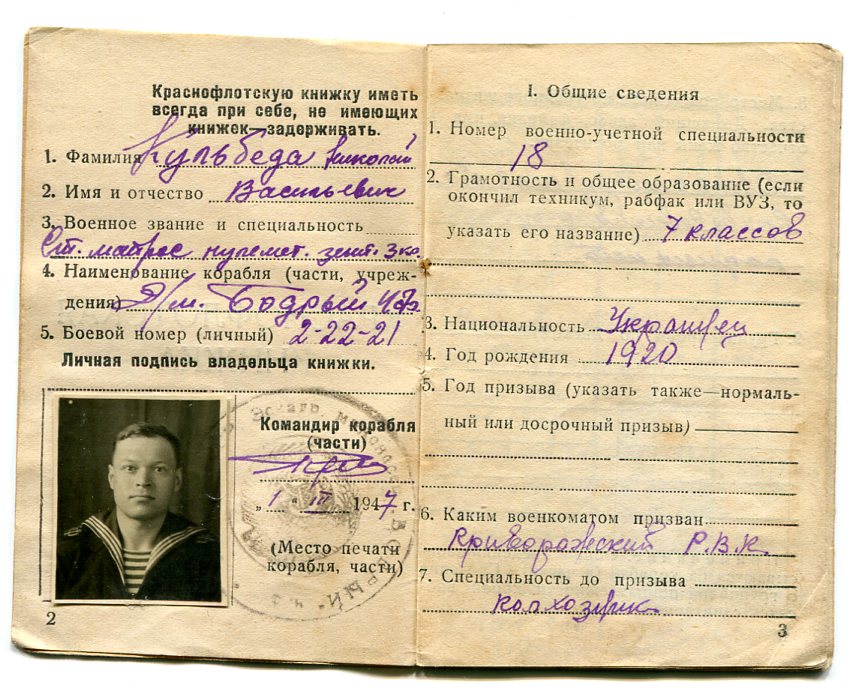 Краснофлотскую книжку иметь
всегда при себе, не имеющих
книжек задерживать.
1. Фамилия Кульбеда Николай
2. Имя и отчество Васильевич
3. Военное звание и специальность
Ст. матрос пулемет. зенит.
4. Наименование корабля (части, учреж-
дения) Э/м. Бодрый ЧФ
5. Боевой номер (личный) 2-22-21
Личная подпись владельца книжки.
Командир корабля
(части)
„1“ III 1947 г.
(Место печати
корабля, части)
БОДРЫЙ
2
I. Общие сведения
1. Номер военно-учетной специальности
18
2. Грамотность и общее образование (если
окончил техникум, рабфак или ВУЗ, то
указать его название) 7 классов
3. Национальность Украинец
4. Год рождения 1920
5. Год призыва (указать также—нормаль-
ный или досрочный призыв)
6. Каким военкоматом призван
Криворожский Р.В.К.
7. Специальность до призыва
колхозник
3